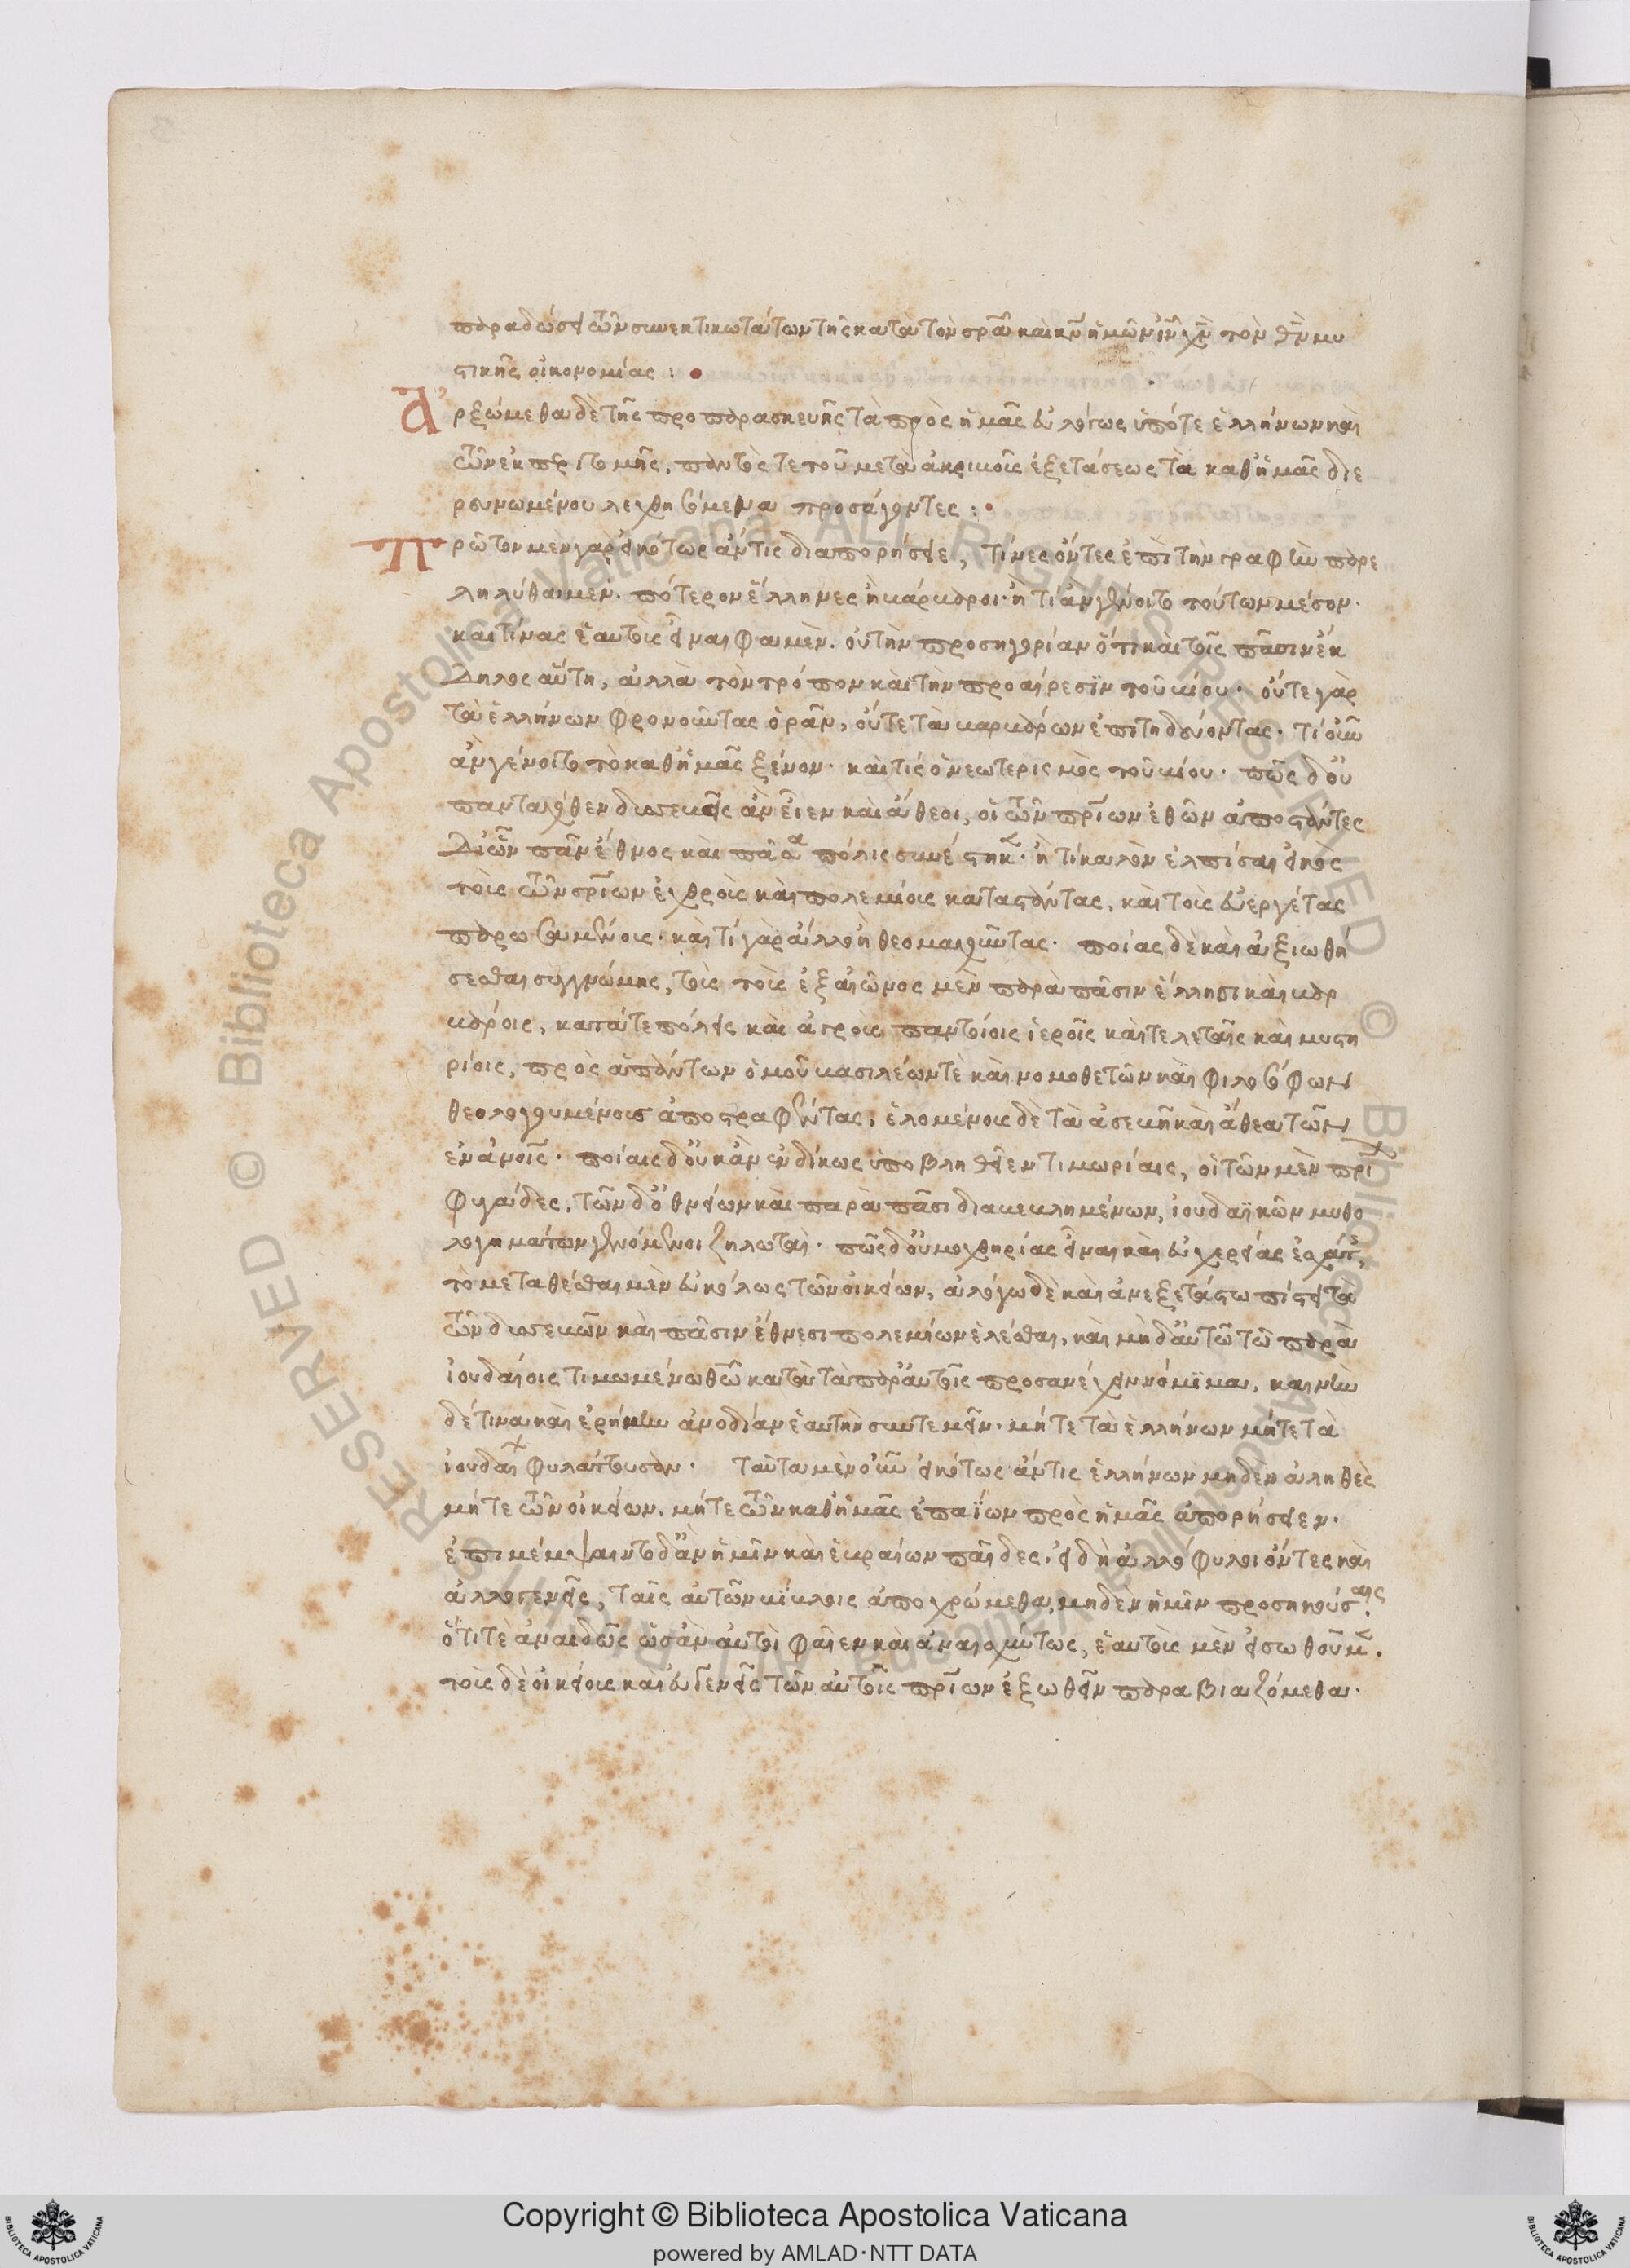 παραδώσει τῶν συνεκτικωτάτων τῆς κατὰ τὸν σρᾱ καὶ κν̄ ἡμῶν ιν̄ χν̄ τὸν θν̄ μυ
στικῆς οἰκονομίας :
Ἀρξώμεθα δὲ τῆς προπαρασκευῆς τὰ πρὸς ἡμᾶς εὐλόγως ὑπό τε ἑλλήνων καὶ
τῶν ἐκ περιτομῆς, παντός τε τοῦ μετὰ ἀκριβοῦς ἐξετάσεως τὰ καθ' ἡμᾶς διε
ρευνωμένου λεχθησόμενα προσάγοντες :
Πρῶτον μεν γαρ εἰκότως ἄν τις διαπορήσειε, τίνες ὄντες ἐπὶ τὴν γραφὴν παρε
ληλύθαμεν. πότερον ἕλληνες ἢ βάρβαροι· ἢ τί ἂν γένοιτο τούτων μέσον·
και τίνας ἑαυτοὺς εἶναι φαμὲν. οὐ τὴν προσηγορίαν ὅτι καὶ τοῖς πᾶσιν ἔκ
δηλος αὕτη, ἀλλὰ τὸν τρόπον καὶ τὴν προαίρεσϊν τοῦ βίου· οὔτε γὰρ
τὰ ἑλλήνων φρονοῦντας ὁρᾶν, οὔτε τὰ βαρβάρων ἐπιτηδεύοντας. τί οὖν
ἂν γένοιτο τὸ καθ' ἡμᾶς ξένον· καὶ τίς ὁ νεωτερισμὸς τοῦ βίου· πῶς δ' οὐ
πανταχόθεν δυσσεβεῖς ἂν εἶεν καὶ ἄθεοι, οἱ τῶν πρίων ἐθῶν ἀποστάντες
δι' ὧν πᾶν ἔθνος καὶ πᾶσα πόλις συνέστηκ· ἢ τί καλὸν ἐλπίσαι εἰκὸς
τοὺς τῶν σρίων ἐχθροὺς καὶ πολεμίους καταστάντας, καὶ τοὺς εὐεργέτας
παρωσαμένους· καὶ τί γὰρ ἄλλο ἢ θεομαχοῦντας· ποίας δὲ καὶ ἀξιωθή
σεσθαι συγγνώμης, τοὺς τοὺς ἐξ αἰῶνος μὲν παρὰ πᾶσιν ἕλλησι καὶ βαρ
βάροις, κατά τε πόλεις καὶ ἀγροὺς παντοίοις ἱεροῖς καὶ τελεταῖς καὶ μυστη
ρίοις, πρὸς ἁπάντων ὁμοῦ βασιλέων τὲ καὶ νομοθετῶν καὶ φιλοσόφων
θεολογουμένους ἀποστραφέντας, ἑλομένους δὲ τὰ ἀσεβῆ καὶ ἄθεα τῶν
ἐν ἀνοις· ποίαις δ' οὐκ ἂν ἐνδίκως ὑποβληθεῖεν τιμωρίαις, οἱ τῶν μὲν πρι
φυγάδες, τῶν δ' ὀθνείων καὶ παρὰ πᾶσι διαβεβλημένων, ἰουδαϊκῶν μυθο
λογημάτων γενόμενοι ζηλωταὶ· πῶς δ' οὐ μοχθηρίας εἶναι καὶ εὐχερείας ἐσχάτ,
τὸ μεταθέσθαι μὲν εὐκόλως τῶν οἰκείων, ἀλόγω δὲ καὶ ἀνεξετάστω πίστει τὰ
τῶν δυσσεβῶν καὶ πᾶσιν ἔθνεσι πολεμίων ἑλέσθαι, καὶ μὴ δ' αὐτῶ τῶ παρὰ
ἰουδαίοις τιμωμένω θῶ κατὰ τὰ παρ' αὐτοῖς προσανέχειν νόμϊμα, καινὴν
δέ τινα καὶ ἐρήμην ἀνοδίαν ἑαυτὴν συντεμεῖν· μήτε τὰ ἑλλήνων μήτε τὰ
ἰουδαι φυλάττουσαν· Ταῦτα μὲν οὖν εἰκότως ἄν τις ἑλλήνων μηδεν ἀληθὲς
μήτε τῶν οἰκείων. μήτε τῶν καθ' ἡμᾶς ἐπαΐων πρὸς ἡμᾶς ἀπορήσειεν·
ἐπιμέμψαιντο δ' ἂν ἡμῖν καὶ ἑβραίων παῖδες. εἰ δὴ ἀλλόφυλοι ὄντες καὶ
ἀλλογενεῖς, ταῖς αὐτῶν βίβλοις ἀποχρώμεθα, μηδὲν ἡμῖν προσηκούσαις.
ὅτι τὲ ἀναιδῶς ὡς ἂν αὐτοὶ φαῖεν καὶ ἀναισχύντως, ἑαυτοὺς μὲν εἰσωθοῦμ.
τοὺς δὲ οἰκείους καὶ ἐγγενεῖς τῶν αὐτοῖς πρίων ἐξωθεῖν παραβιαζόμεθα·
Copyright © Biblioteca Apostolica Vaticana
powered by AMLAD·NTT DATA